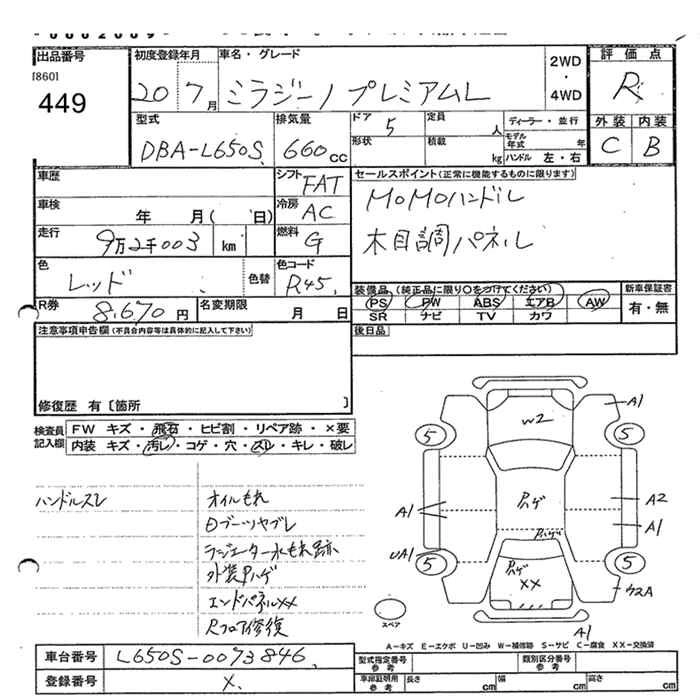 出品番号
[860]
449
初度登録年月
20 7月
車名・グレード
ミラジーノ プレミアムL
2WD
・
4WD
評価点
R
外装 内装
C B
型式
DBA-L650S
排気量
660cc
ドア 5
定員 人
形状
積載 kg
ディーラー・並行
モデル年式 年
ハンドル 左・右
車歴
シフト FAT
車検 年 月( 日)
冷房 AC
走行 9万2千003 km
燃料 G
色 レッド 色替
色コード R45
R券 8,670円
名変期限 月 日
セールスポイント(正常に機能するものに限ります)
MOMOハンドル
木目調パネル
装備品(純正品に限り○をつけてください)
新車保証書
PS PW ABS エアB AW
有・無
SR ナビ TV カワ
後日品
注意事項申告欄(不具合内容等は具体的に記入して下さい)
修復歴 有〔箇所 〕
検査員記入欄
FW キズ・飛石・ヒビ割・リペア跡・×要
内装 キズ・汚レ・コゲ・穴・スレ・キレ・破レ
ハンドルスレ
オイルもれ
Dブーツヤブレ
ラジエーター水もれ跡
外装Pハゲ
エンドパネルXX
Rフロア修復
A1
W2
5 5
A1
Pハゲ
A2
A1
Pハゲ
UA1
5 5
Pハゲ
XX
A1
スペア
A-キズ E-エクボ U-凹み W-補修跡 S-サビ C-腐食 XX-交換済
車台番号 L650S-0073846
登録番号 X
型式指定番号
参考
類別区分番号
参考
車庫証明用
参考
長さ cm
幅 cm
高さ cm